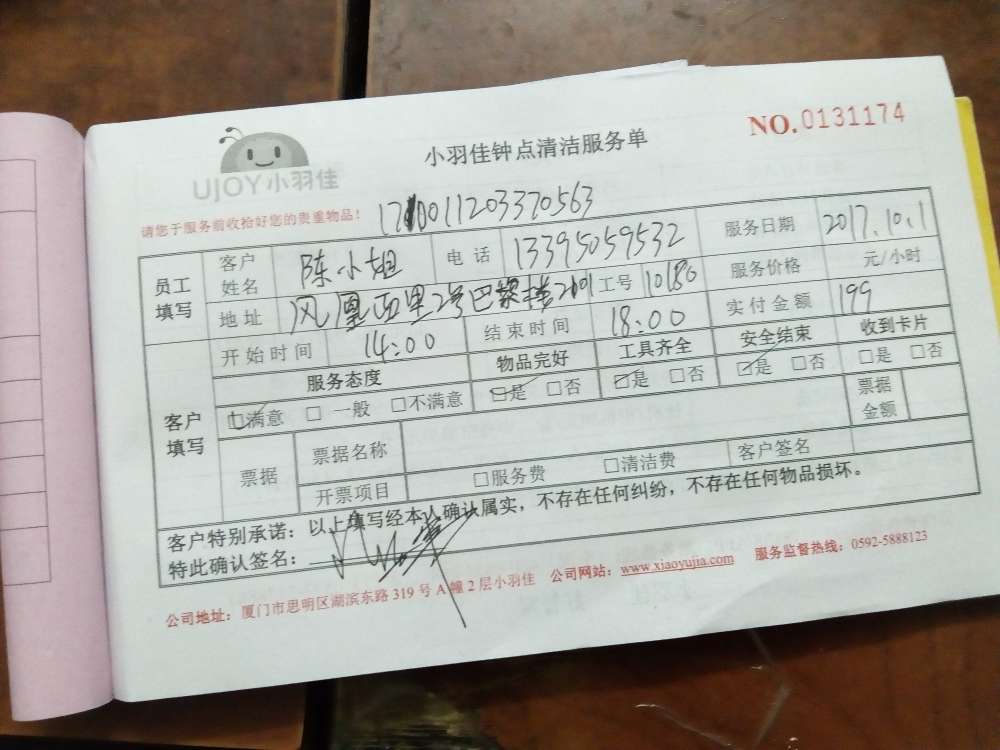 UJOY小羽佳
小羽佳钟点清洁服务单
NO.0131174
请您于服务前收拾好您的贵重物品!
员工填写 客户姓名 陈小姐 电话 13395059532 服务日期 2017.10.1
地址 凤凰西里2号巴黎楼 工号 10180 服务价格 元/小时
开始时间 14:00 结束时间 18:00 实付金额 199
客户填写 服务态度 物品完好 工具齐全 安全结束 收到卡片
☑满意 □一般 □不满意 ☑是 □否 ☑是 □否 ☑是 □否 □是 □否
票据 票据名称 票据金额
开票项目 □服务费 □清洁费 客户签名
客户特别承诺：以上填写经本人确认属实，不存在任何纠纷，不存在任何物品损坏。
特此确认签名：
公司地址：厦门市思明区湖滨东路319号A幢2层小羽佳 公司网站：www.xiaoyujia.com 服务监督热线：0592-5888123